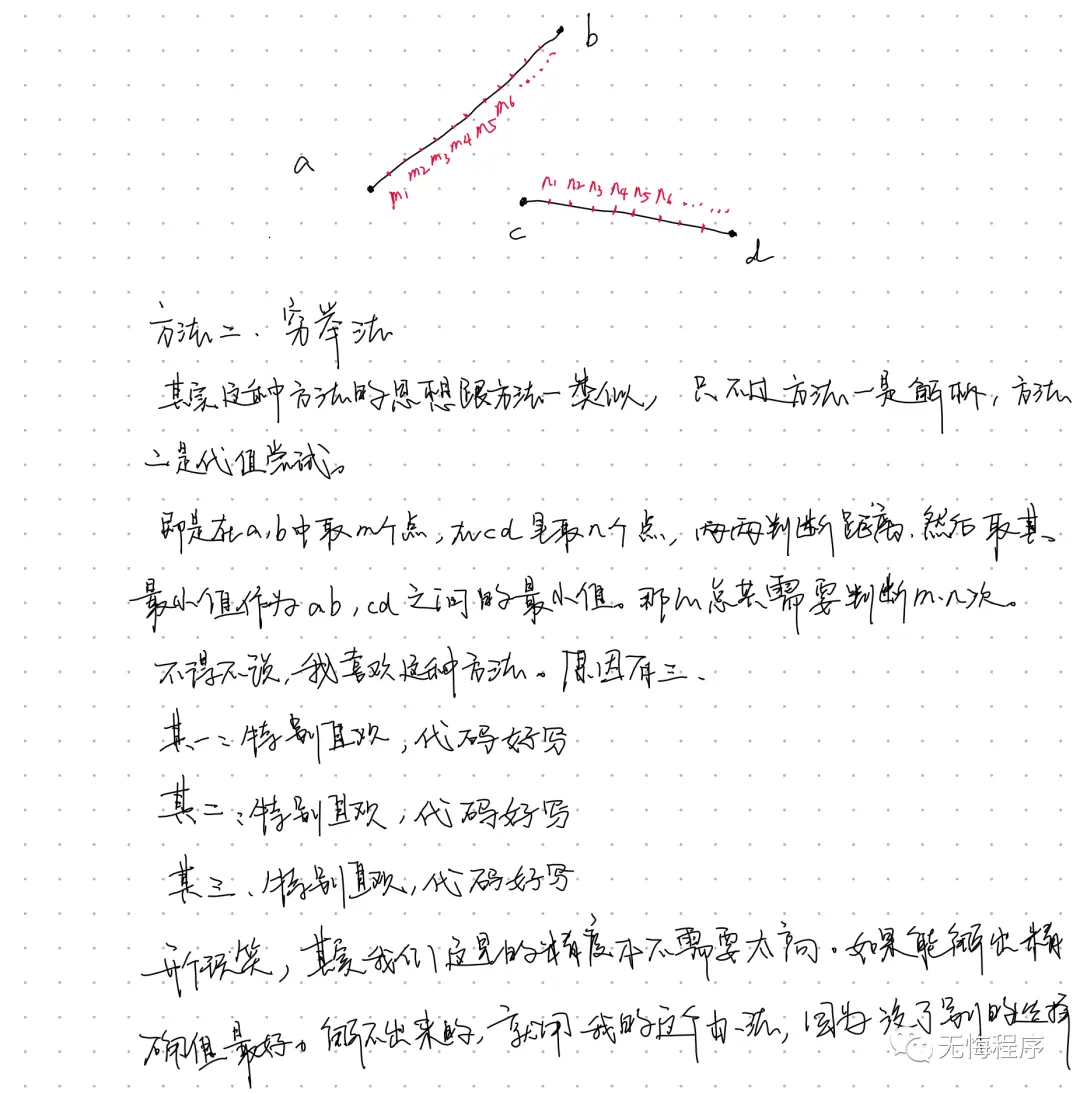 b
a
m1 m2 m3 m4 m5 m6 ......
n1 n2 n3 n4 n5 n6 ......
c
d
方法二、穷举法
其实这种方法的思想跟方法一类似，只不过方法一是解析，方法
二是代值尝试。
即是在a,b中取m个点，在cd里取n个点，两两判断距离.然后取其
最小值作为ab,cd之间的最小值。那么总共需要判断m·n次。
不得不说，我喜欢这种方法。原因有三、
其一：特别直观，代码好写
其二：特别直观，代码好写
其三、特别直观，代码好写
开个玩笑，其实我们这里的精度本不需要太高。如果能解出精
确值最好。解不出来的，就用我的这个办法，因为没了别的选择
无悔程序